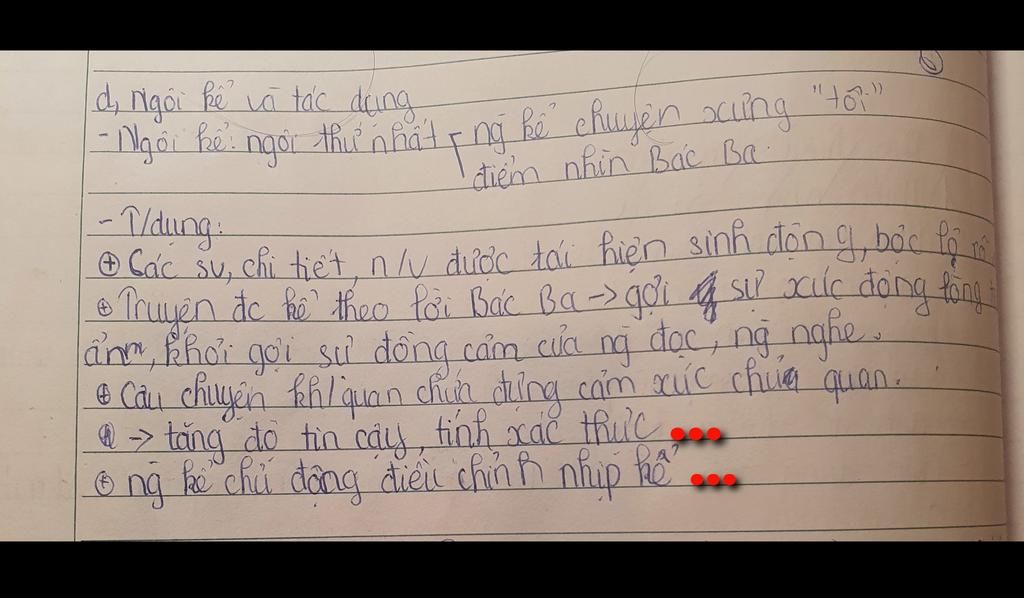 d, Ngôi kể và tác dụng
- Ngôi kể: ngôi thứ nhất ng kể chuyện xưng "tôi"
điểm nhìn Bác Ba.
- T/dụng:
⊕ Các sv, chi tiết, n/v được tái hiện sinh động, bộc lộ rõ
⊕ Truyện đc kể theo lời Bác Ba → gợi sự xúc động lòng
khơi gợi sự đồng cảm của ng đọc, ng nghe.
⊕ Câu chuyện kh/quan chứa đựng cảm xúc chủ quan.
→ tăng độ tin cậy, tính xác thực •••
⊕ ng kể chủ động điều chỉnh nhịp kể •••